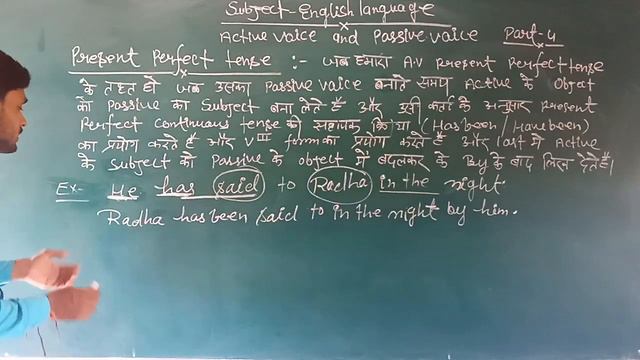 Subject - English language
Active voice and Passive voice Part-4
Present Perfect tense :- जब हमारा A.V present perfect tense
के तहत हो जब उसका Passive voice बनाते समय Active के Object
को Passive का Subject बना लेते हैं और उसी कर्ता के अनुसार present
Perfect continuous tense की सहायक क्रिया (Has been / Have been)
का प्रयोग करते हैं और VIII form का प्रयोग करते हैं और last में Active
के Subject को Passive के object में बदलकर के By के बाद लिख देते हैं।
Ex- He has said to Radha in the night.
Radha has been said to in the night by him.